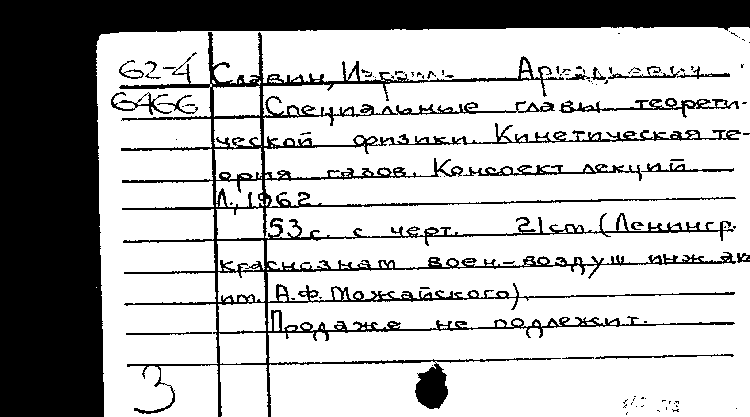 62-4 Славин, Израиль Аркадьевич
6466 Специальные главы теорети-
ческой физики. Кинетическая те-
ория газов. Конспект лекций
Л., 1962.
53 с. с черт. 21 cm. (Ленингр.
краснознам воен-воздуш инж. ак
им. А.Ф. Можайского).
Продаже не подлежит.
3